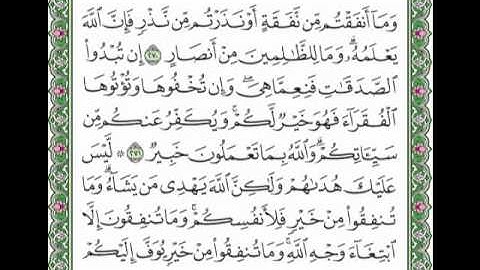 وَمَآ أَنفَقْتُم مِّن نَّفَقَةٍ أَوْ نَذَرْتُم مِّن نَّذْرٍ فَإِنَّ ٱللَّهَ
يَعْلَمُهُۥ ۗ وَمَا لِلظَّـٰلِمِينَ مِنْ أَنصَارٍ ﴿٢٧٠﴾ إِن تُبْدُوا۟
ٱلصَّدَقَـٰتِ فَنِعِمَّا هِىَ ۖ وَإِن تُخْفُوهَا وَتُؤْتُوهَا
ٱلْفُقَرَآءَ فَهُوَ خَيْرٌ لَّكُمْ ۚ وَيُكَفِّرُ عَنكُم مِّن
سَيِّـَٔاتِكُمْ ۗ وَٱللَّهُ بِمَا تَعْمَلُونَ خَبِيرٌ ﴿٢٧١﴾ ۞ لَّيْسَ
عَلَيْكَ هُدَىٰهُمْ وَلَـٰكِنَّ ٱللَّهَ يَهْدِى مَن يَشَآءُ ۗ وَمَا
تُنفِقُوا۟ مِنْ خَيْرٍ فَلِأَنفُسِكُمْ ۚ وَمَا تُنفِقُونَ إِلَّا
ٱبْتِغَآءَ وَجْهِ ٱللَّهِ ۚ وَمَا تُنفِقُوا۟ مِنْ خَيْرٍ يُوَفَّ إِلَيْكُمْ